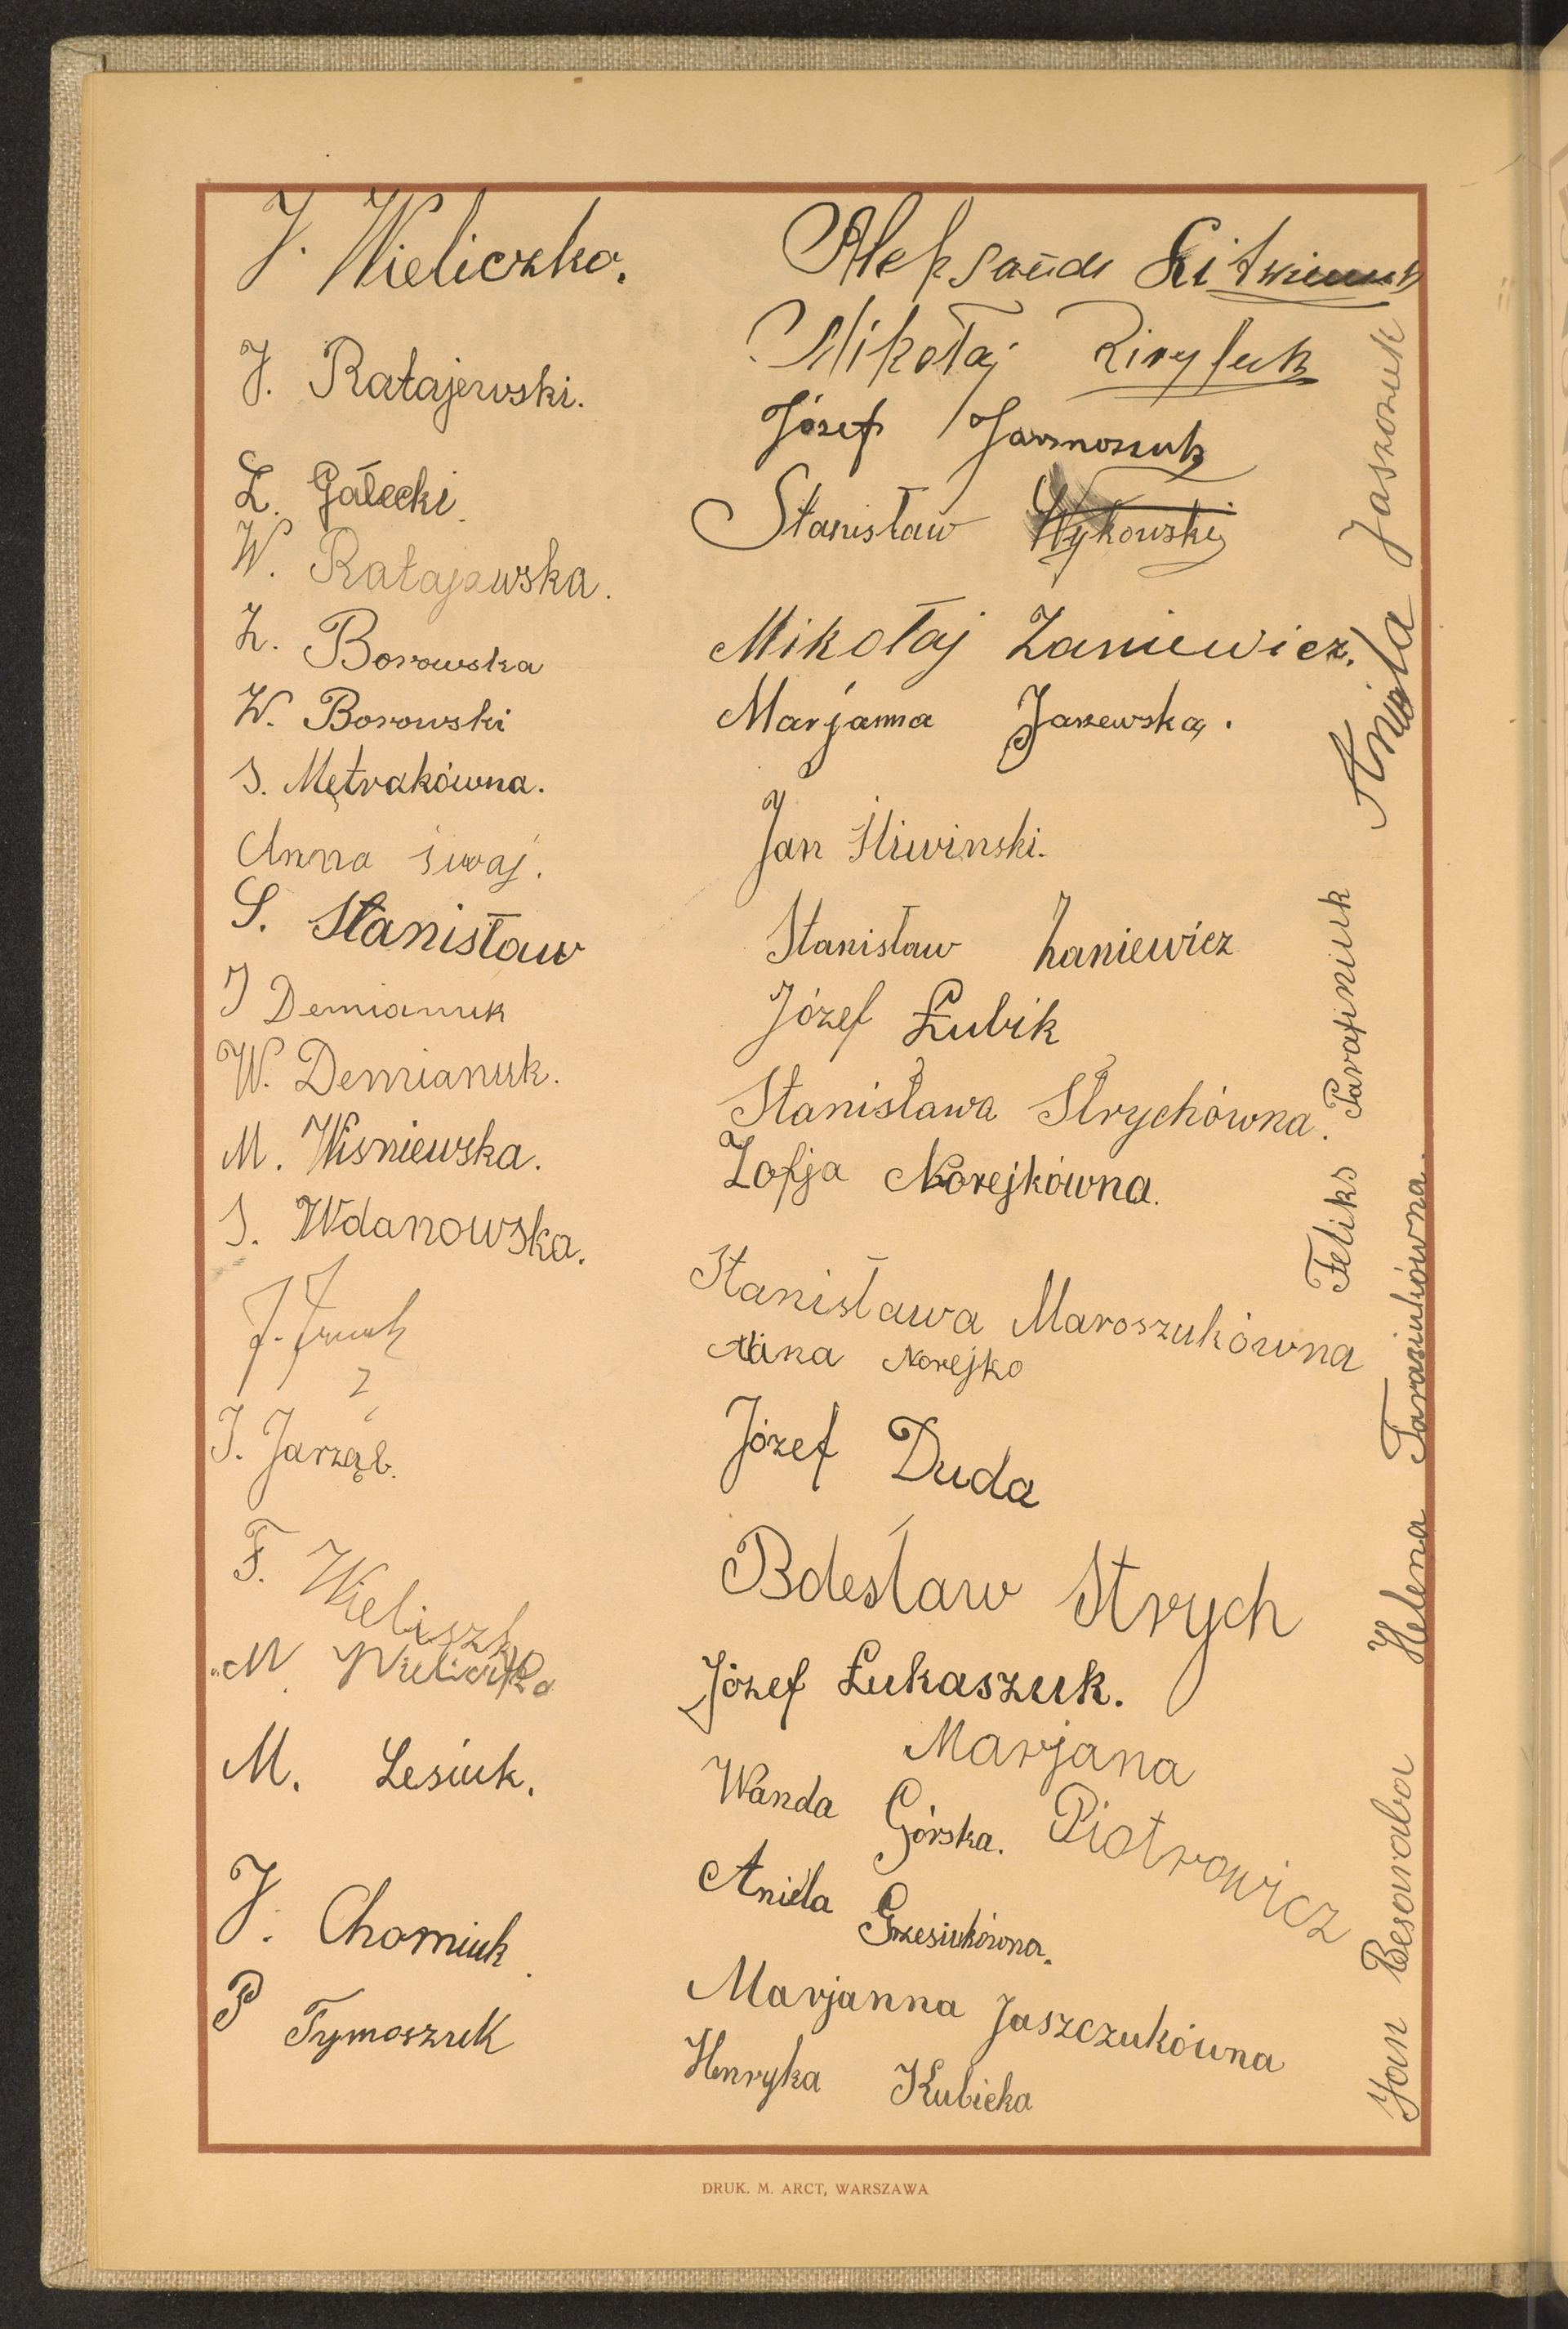 J. Wieliczko.
J. Ratajewski.
L. Gałecki.
W. Ratajewska.
Z. Borowska
W. Borowski
S. Mętrakówna.
Anna Śwaj.
S. Stanisław
J Demianiuk
W. Demianuk.
M. Wisniewska.
S. Wdanowska.
J.
J. Jarząb.
F. Wieliszk
M. Wieliczko
M. Lesiuk.
J. Chomiuk.
P Tymoszuk
Aleksandr Litwieniuk
Mikołaj Kiryluk
Józef Jarmoszuk
Stanisław Wykowski
Mikołaj Zaniewicz.
Marjanna Jaszewska.
Jan Sliwinski.
Stanisław Zaniewicz
Józef Łubik
Stanisława Strychówna.
Zofja Norejkówna.
Stanisława Maroszukówna
Nina Norejko
Józef Duda
Bolesław Strych
Józef Łukaszuk.
Marjana Piotrowicz
Wanda Górska.
Aniela Grzesiukówna.
Marjanna Jaszczukówna
Henryka Kubicka
Aniela Jaszczuk
Feliks Parafiniuk
Helena Tarasiukówna.
Jan Besaraba
DRUK. M. ARCT, WARSZAWA